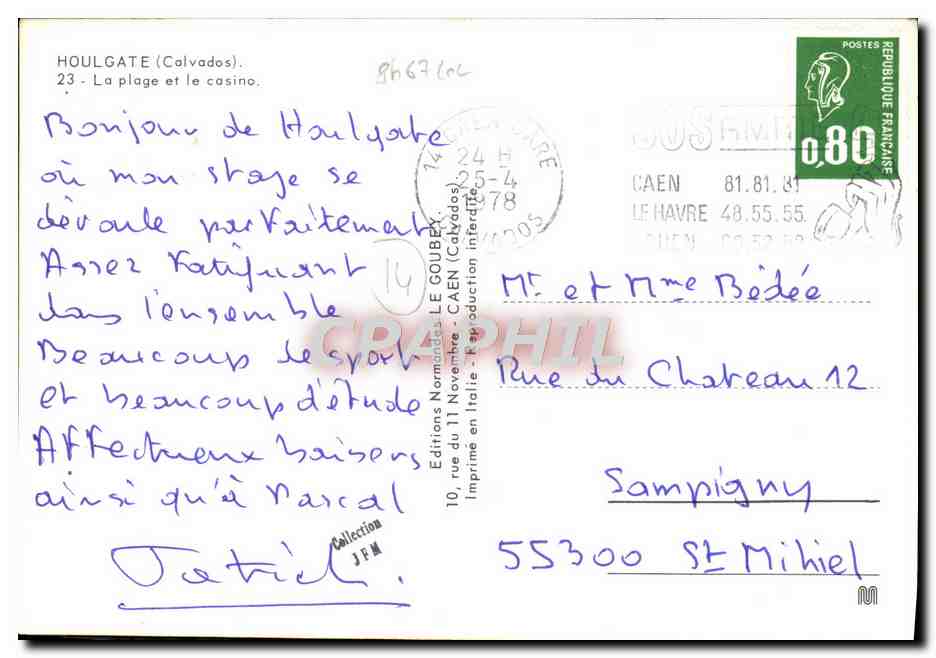 HOULGATE (Calvados).
23 - La plage et le casino.
Bonjour de Houlgate
où mon stage se
déroule parfaitement
Assez fatiguant
dans l'ensemble
Beaucoup de sport
et beaucoup d'étude
Affectueux baisers
ainsi qu'à Pascal
Patrick.
Collection
JFM
14
Editions Normandes LE GOUBEY.
10, rue du 11 Novembre - CAEN (Calvados)
Imprimé en Italie - Reproduction interdite
CPAPHIL
14 CAEN GARE
24 H
25-4
1978
CALVADOS
SOS AMITIE
CAEN 81.81.81
LE HAVRE 48.55.55
POSTES
REPUBLIQUE FRANÇAISE
0,80
Mr et Mme Bédée
Rue du Chateau 12
Sampigny
55300 St Mihiel